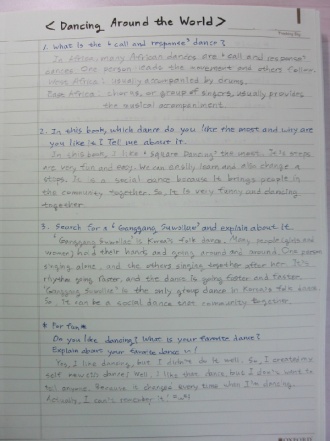 < Dancing Around the World >
1. What is the "call and response" dance?
In Africa, many African dances are "call and response"
dances. One person leads the movement and others follow.
West Africa : usually accompanied by drums.
East Africa : chorus, or group of singers, usually provides
the musical accompaniment.
2. In this book, which dance do you like the most and why are
you like it? Tell me about it.
In this book, I like "Square Dancing" the most. It's steps
are very fun and easy. We can easily learn and also change
steps. It is a social dance because it brings people in
the community together. So, it is very funny and dancing
together.
3. Search for a 'Ganggang Suwollae' and explain about it.
'Ganggang Suwollae' is Korea's folk dance. Many people
women) hold their hands and going around and around. One person
singing alone, and the others singing together after her. It's
rhythm going faster, and the dance is going faster and faster.
'Ganggang Suwollae' is the only group dance in Korea's folk dance.
So, it can be a social dance that community together.
* For fun *
Do you like dancing? What is your favorite dance?
Explain about your favorite dance in!
Yes, I like dancing, but I didn't do it well. So, I created
self new dance! Well, I like that dance, but I don't want to
tell anyone. Because it changed every time when I'm dancing.
Actually, I can't remember it!